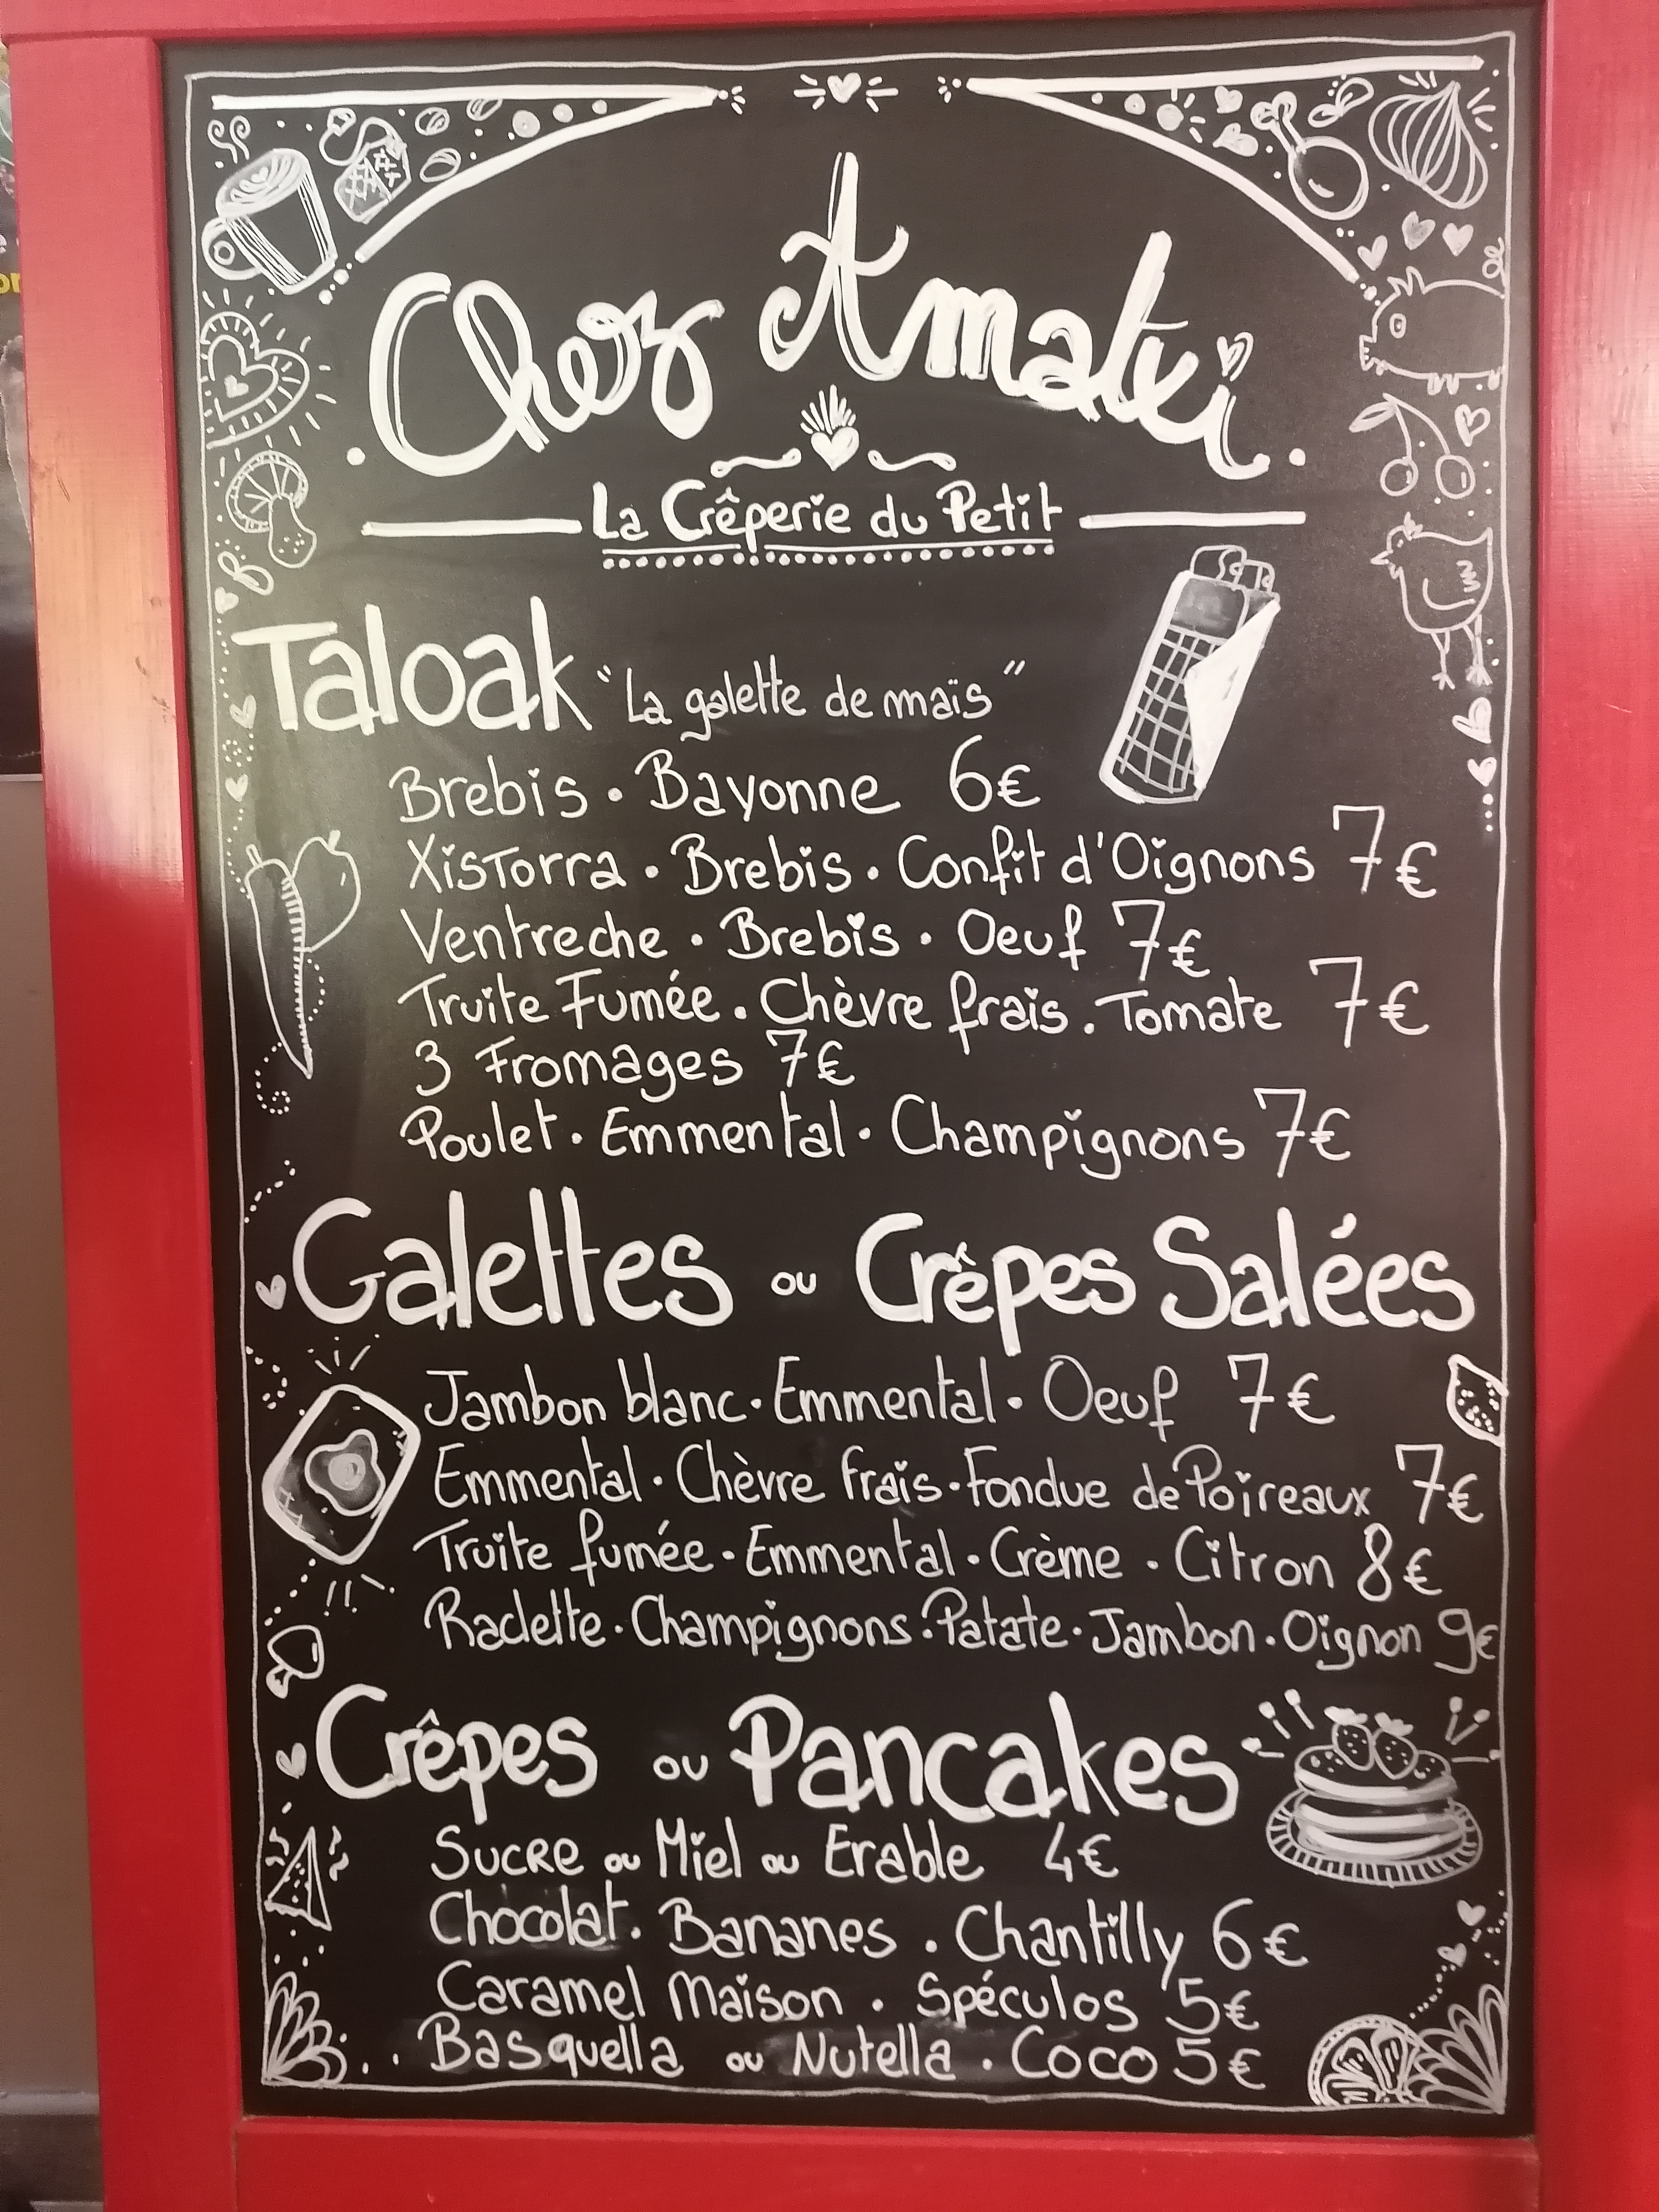 Chez Amatxi
La Crêperie du Petit
Taloak "La galette de maïs"
Brebis . Bayonne 6€
Xistorra . Brebis . Confit d'Oignons 7€
Ventreche . Brebis . Oeuf 7€
Truite Fumée . Chèvre frais . Tomate 7€
3 Fromages 7€
Poulet . Emmental . Champignons 7€
Galettes ou Crêpes Salées
Jambon blanc . Emmental . Oeuf 7€
Emmental . Chèvre frais . Fondue de Poireaux 7€
Truite fumée . Emmental . Crème . Citron 8€
Raclette . Champignons . Patate . Jambon . Oignon 9€
Crêpes ou Pancakes
Sucre ou Miel ou Erable 4€
Chocolat . Bananes . Chantilly 6€
Caramel Maison . Spéculos 5€
Basquella ou Nutella . Coco 5€